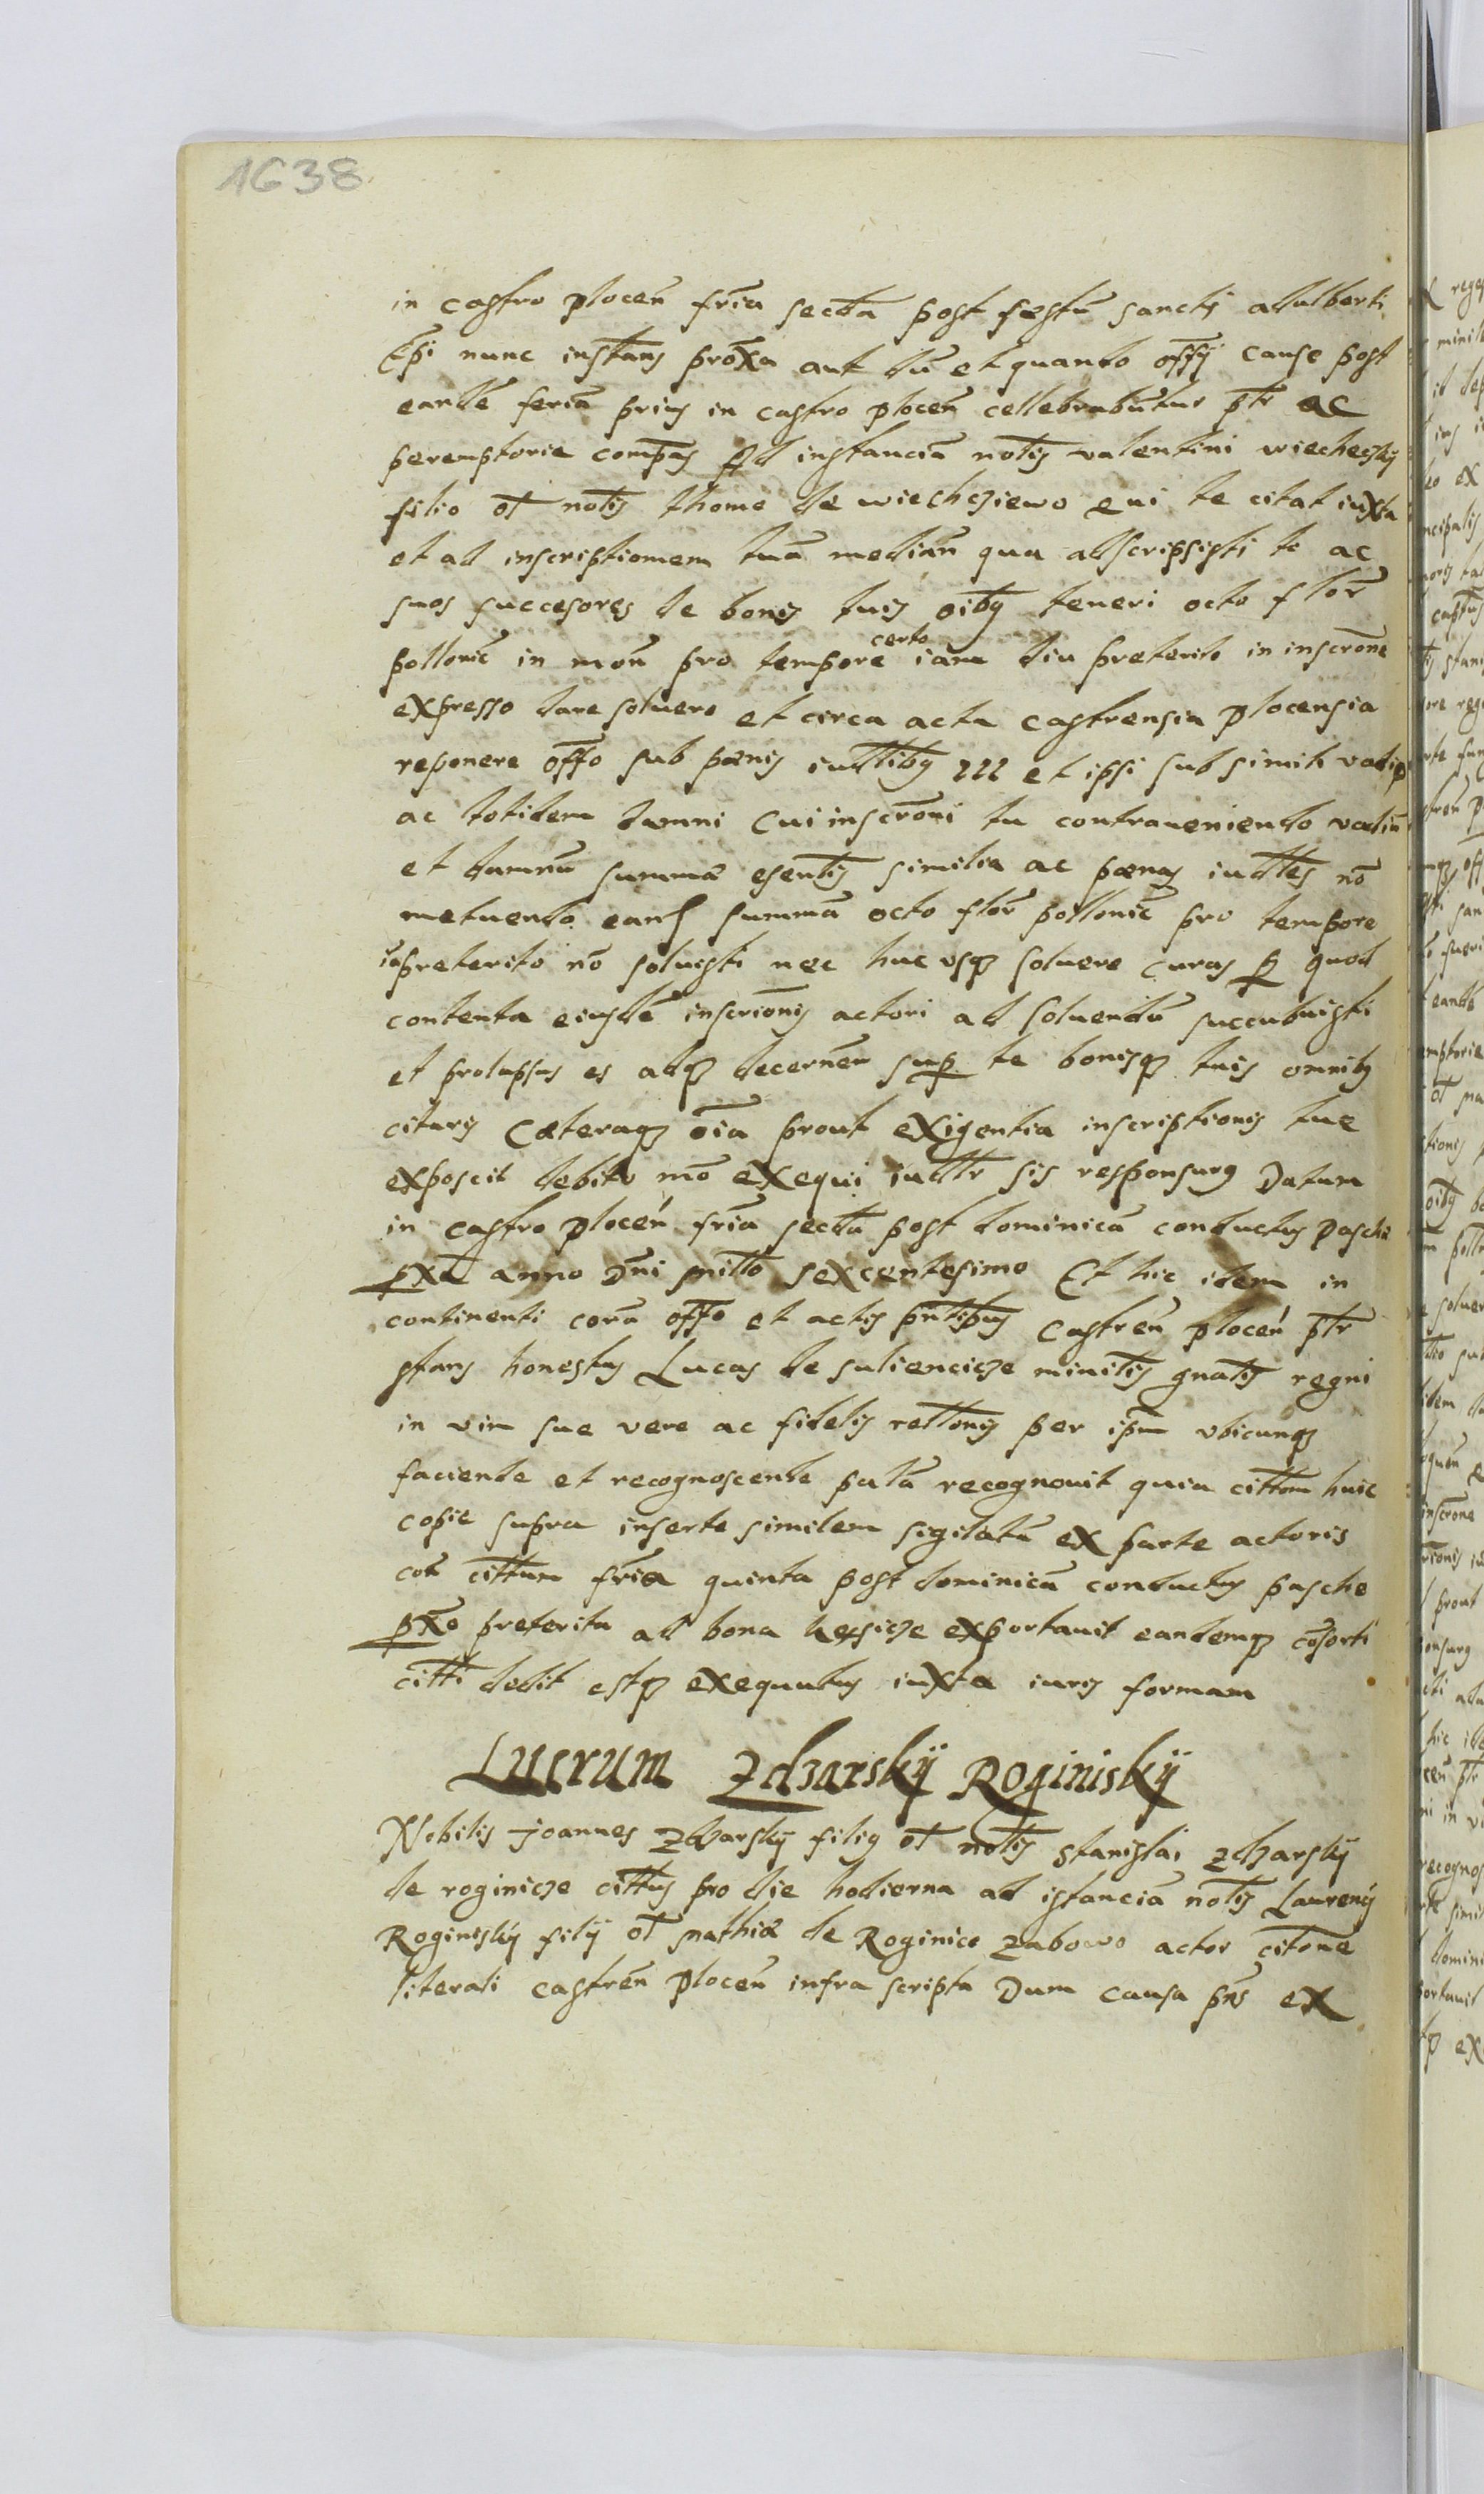 1638
in castro plocen̄ fr̄ia secda post festū sancti adalberti
Ep̄i nunc instans prox̄a aut dū et quando offÿ cause post
eandē feriā prius in castro plocen̄ cellebrabūtur p̄tr ac
peremptorie compas Ad instanciā not̄is valentini wiechecskÿ
filio ol̄ not̄is thome de wiechcziewo qui te citat iuxta
et ad inscriptionem tuā median̄ qua adscripsisti te ac
suos succesores de bonis tuis oībg teneri octo flor̄
pollonic̄ in mon̄ pro tempore certo iam diu preterito in inscrōne
expresso dare soluere et circa acta castrensia plocensia
reponere offo sub pœnis iudlibg 222 et ipsi sub simili vadio
ac totidem damni Cui inscrōni tu contraueniendo vadiū
et damnū summæ esentis similia ac pœnas iudles nō
metuendo eand summā octo flor̄ pollonic̄ pro tempore
ia preterito nō soluisti nec huc vsqz soluere curas p̱ quod
contenta eiusdē inscrionis actori ad soluendū succubuisti
et prolapsus es adqz decernen̄ sup̱ te bonisqz tuis omnibg
citaris Cæteraqz oīa prout exigentia inscriptionis tue
exposcit debito mō exequi iudlr sis responsurg Datum
in castro plocen̄ fr̄ia secda post dominicā conductus pasche
p̱xa anno Dn̄i millō sexcentesimo Et hic idem in
continenti corā offo et actis pn̄tibus Castren̄ plocen̄ p̄tr
stans honestus Lucas de suliencicze minitis gnatis regni
in vim sue vere ac fidelis rellonis per ipm̄ vbicunqz
faciende et recognoscende palā recognouit quia cittom huic
copie supra inserte similem sigilatā ex parte actoris
con̄ cittum fr̄ia quinta post dominicā conductus pasche
p̱xe preterita ad bona exportauit eandemqz cōsorti
citti dedit estqz exequutus iuxta iuris formam
Lucrum Zdzarskÿ Roginiskÿ
Nobilis joannes Zdzarskÿ filig ol̄ not̄is stanislai zdzarskÿ
de roginicze cittus pro die hodierna ad istanciā not̄is Laurenÿ
Roginiskÿ filÿ ol̄ mathiæ de Roginice zabowo actor citōne
literali castren̄ plocen̄ infra scripta Dum causa pn̄s ex